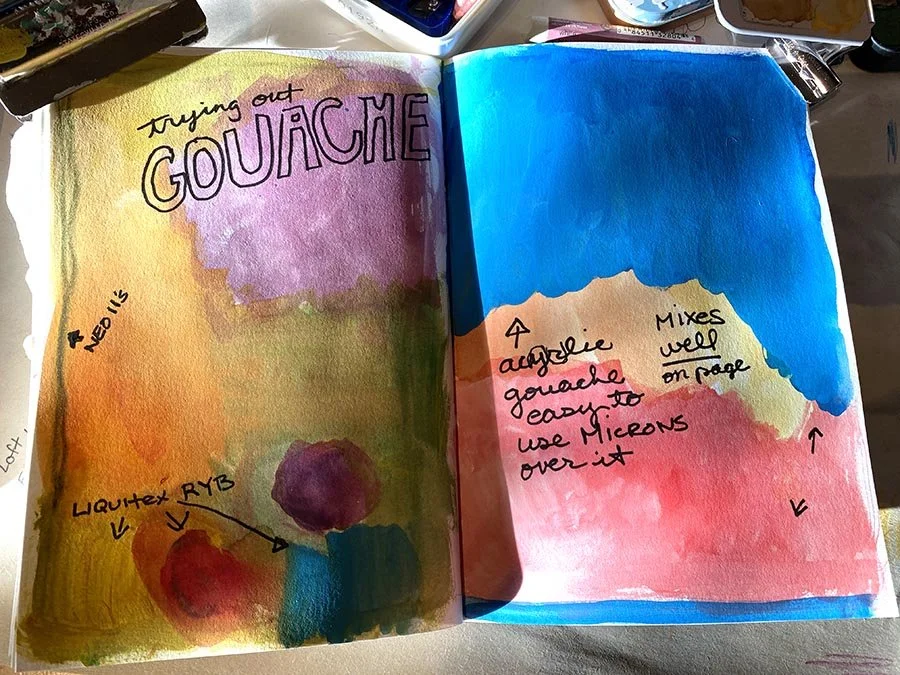 trying out
GOUACHE
NEO II's
LIQUITEX RYB
acrylic
gouache
easy to
use MICRONS
over it
MIXES
well
on page
Loft